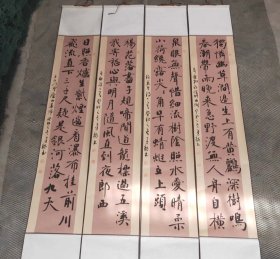 獨憐幽草澗邊生上有黃鸝深樹鳴
春潮帶雨晚來急野渡無人舟自橫
泉眼無聲惜細流樹陰照水愛晴柔
小荷纔露尖尖角早有蜻蜓立上頭
楊花落盡子規啼聞道龍標過五溪
我寄愁心與明月隨風直到夜郎西
日照香爐生紫煙遙看瀑布挂前川
飛流直下三千尺疑是銀河落九天